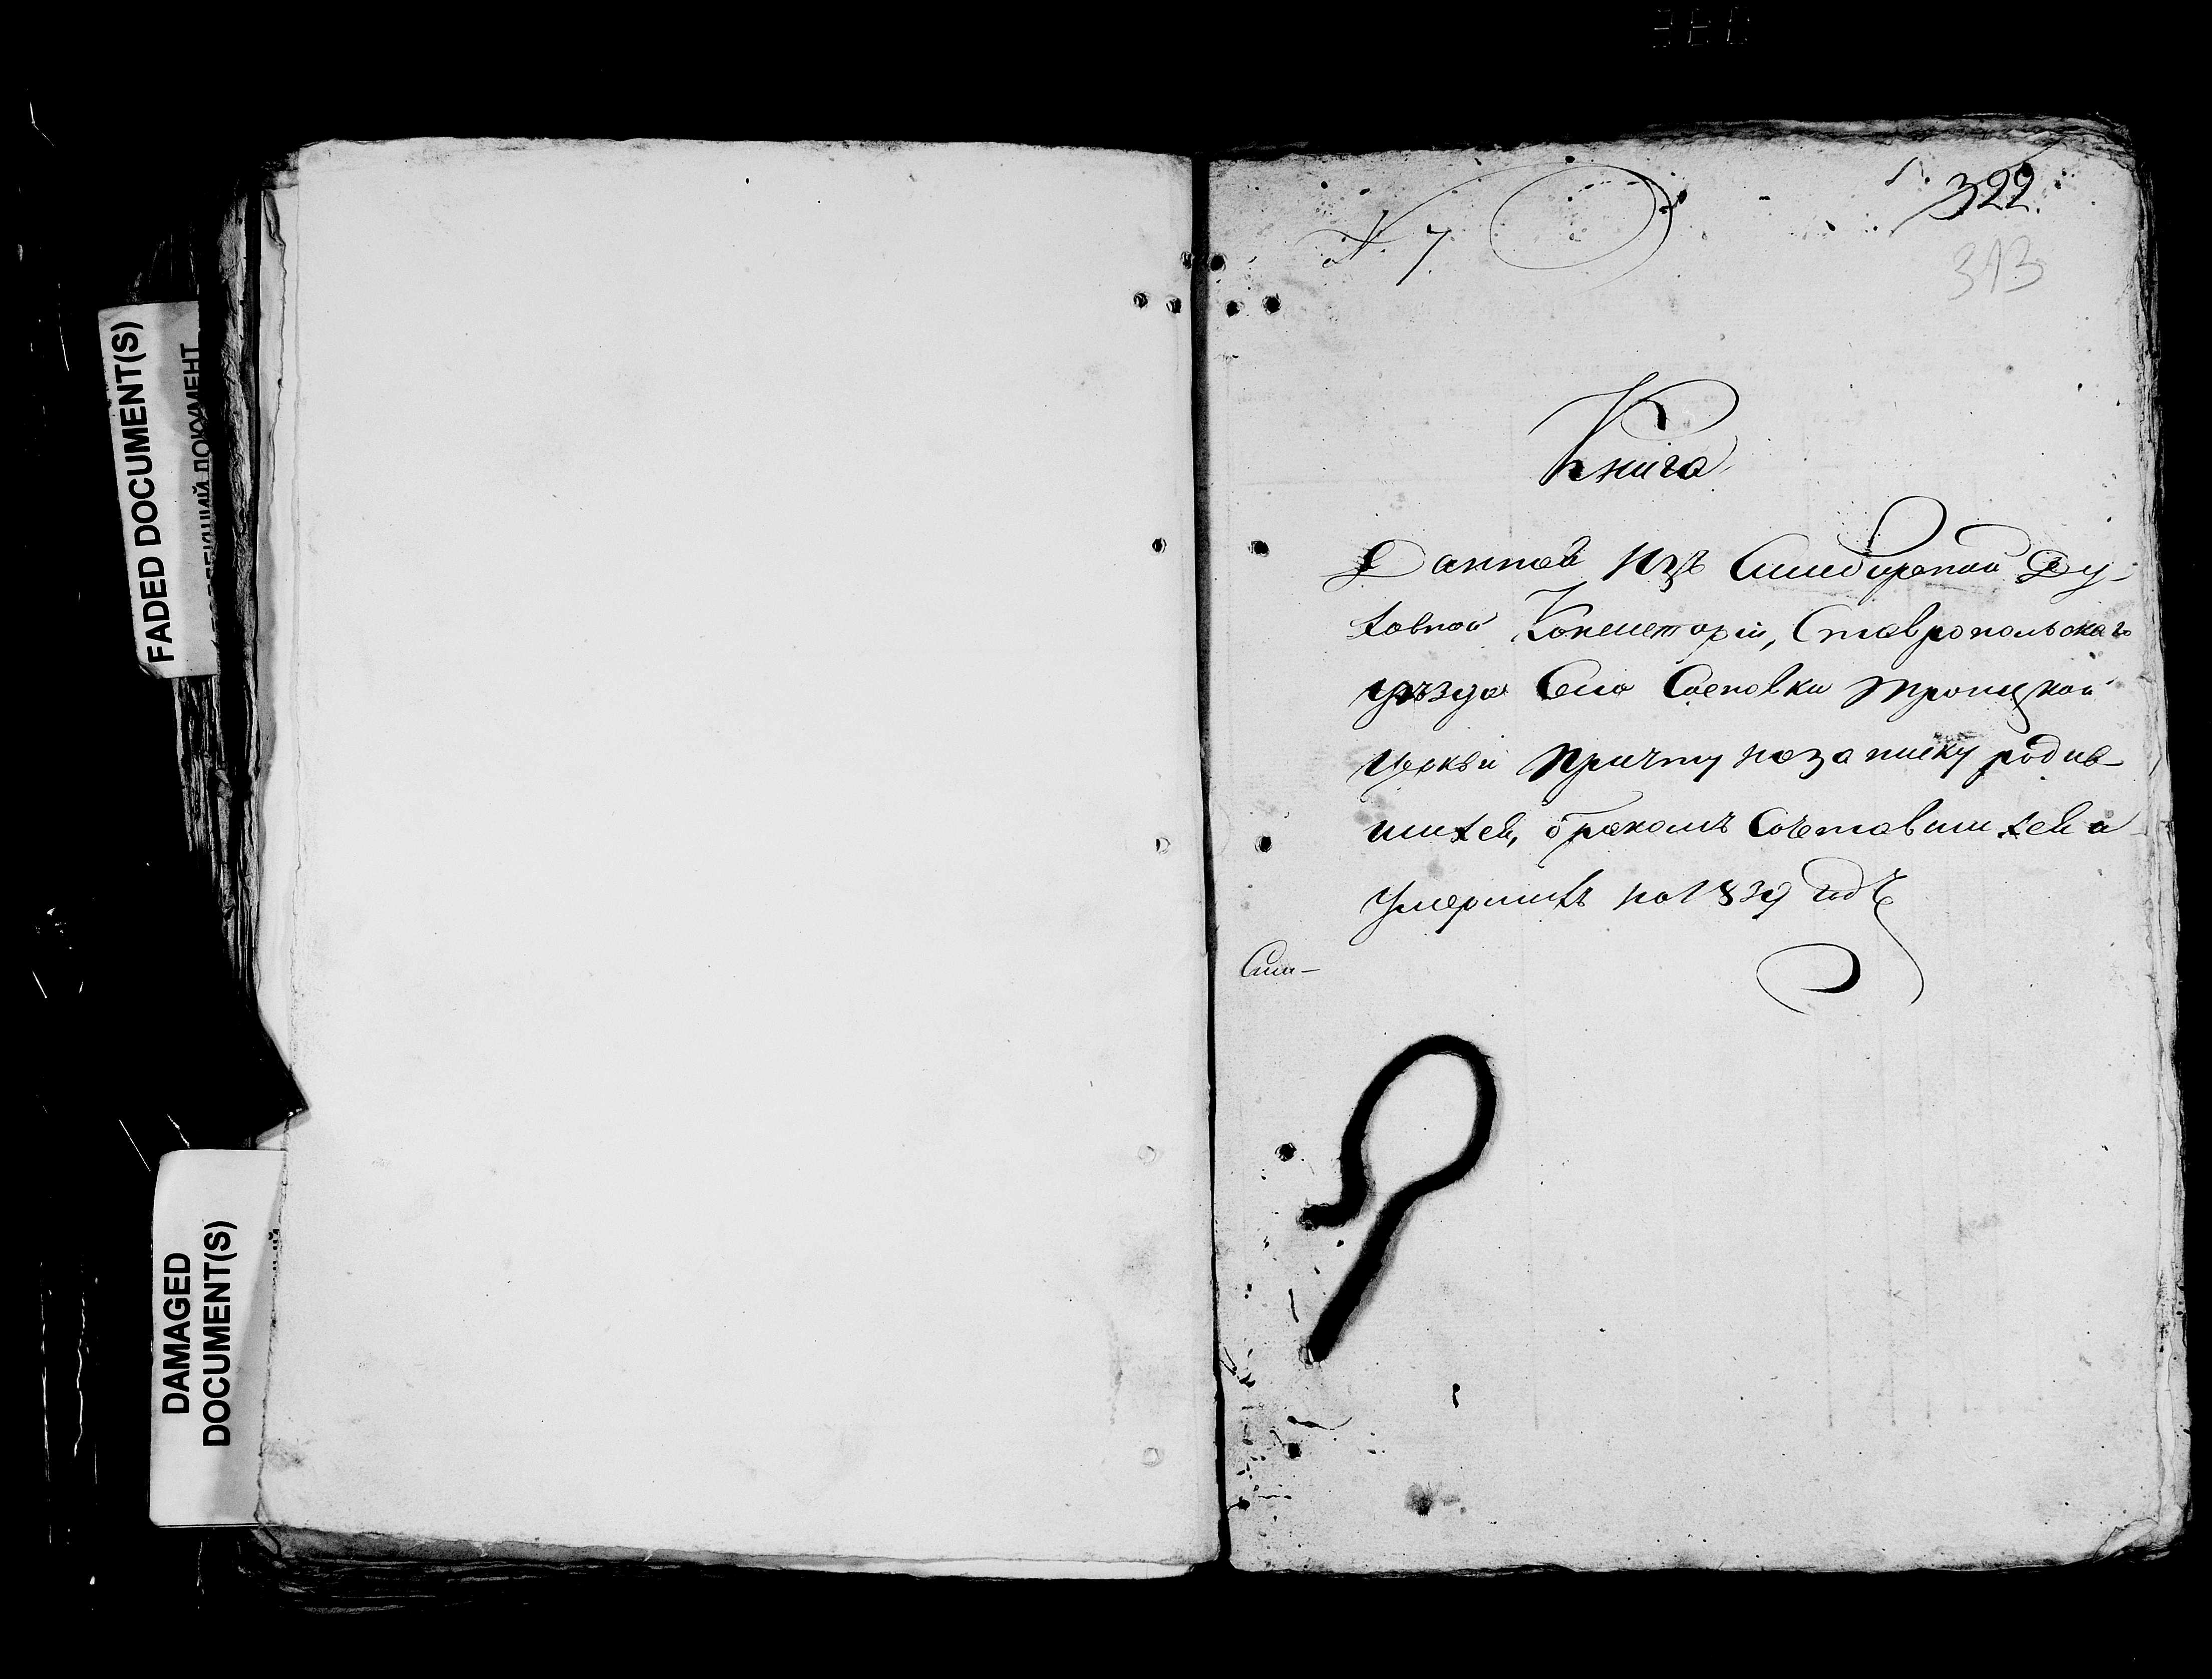 FADED DOCUMENT(S)
ДОКУМЕНТ
DAMAGED
DOCUMENT(S)
N. 7
322.
313
Книга
Данная изъ Симбирской Ду-
ховной Консисторіи, Ставропольскаго
уѣзда Села Сосновки Троицкой
церкви причту назаписку родив-
шихся, бракомъ Сочетавшихся и
умершихъ на 1839 годъ
Сим-